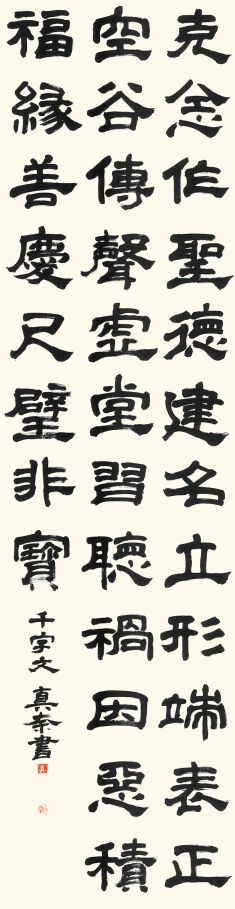 克念作聖德建名立形端表正
空谷傳聲虛堂習聽禍因惡積
福緣善慶尺璧非寶
千字文 真奈書